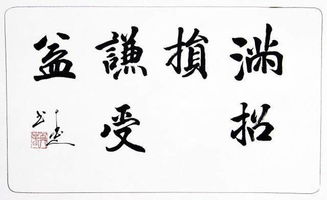 满招
損
謙受
益